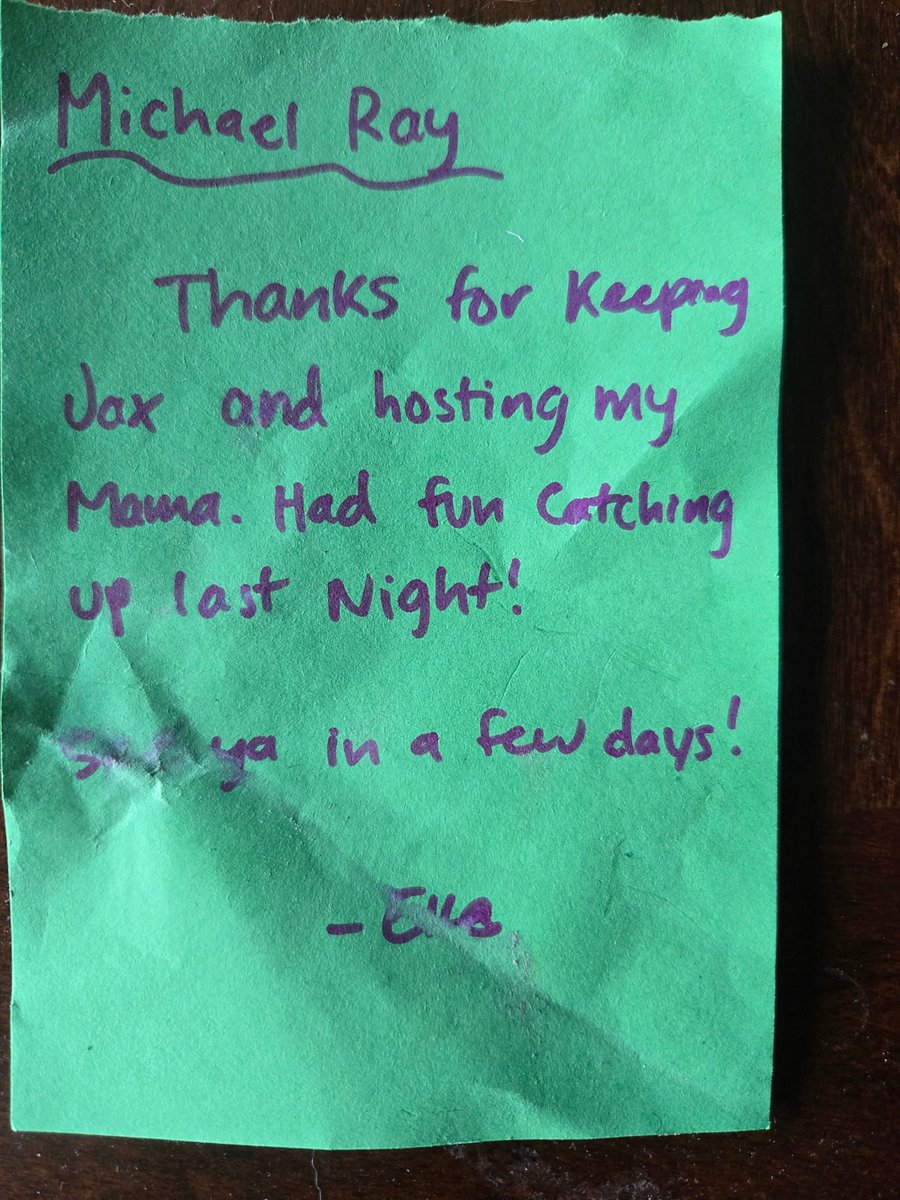 Michael Ray
Thanks for Keeping
Jax and hosting my
Mama. Had fun Catching
up last Night!
See ya in a few days!
- Ella